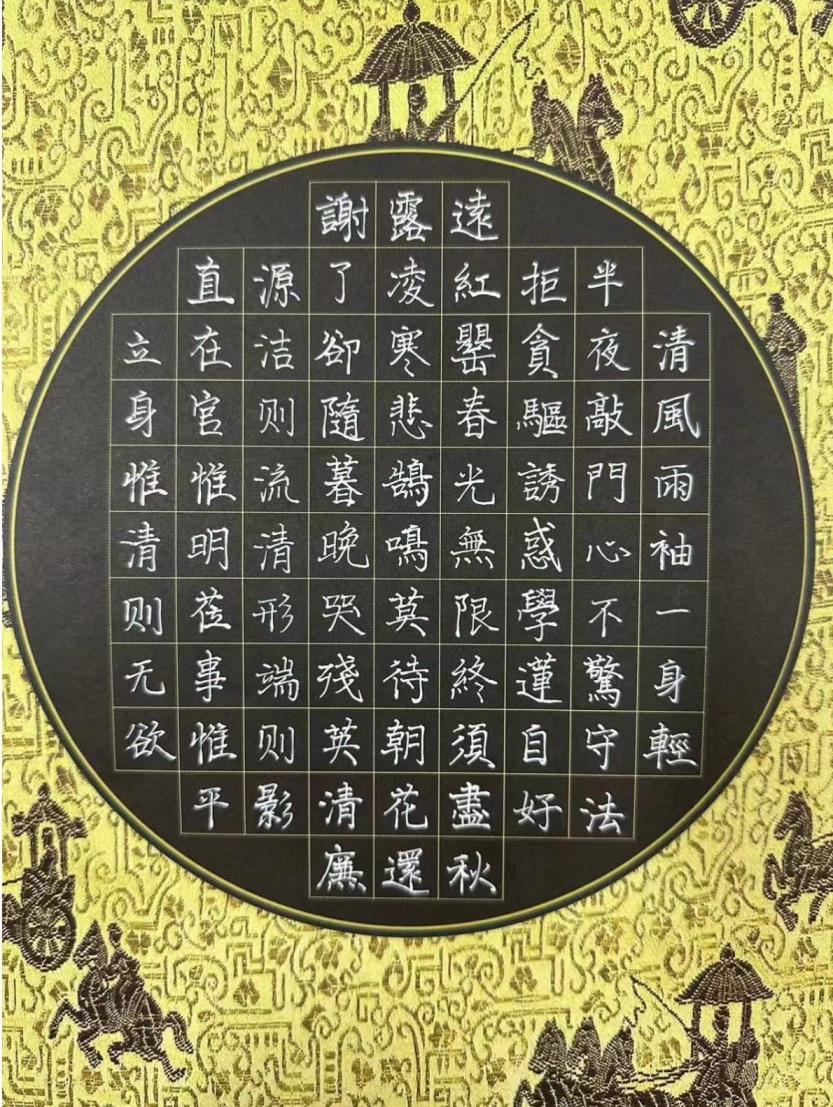 清風雨袖一身輕
半夜敲門心不驚守法
拒貪驅誘惑學蓮自好
遠紅罌春光無限終須盡秋
露凌寒悲鵠鳴莫待朝花還
謝了卻隨暮晚哭殘英清廉
源洁则流清形端则影
直在官惟明莅事惟平
立身惟清则无欲